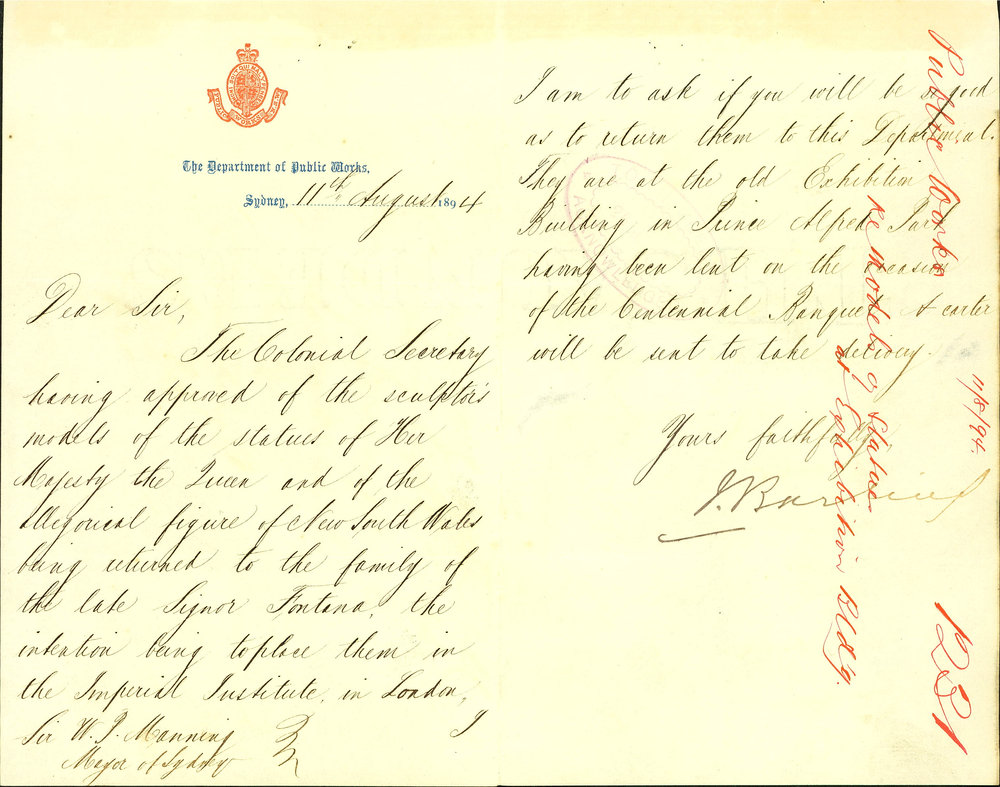 The Department of Public Works,
Sydney, 11th August 1894
Dear Sir,
The Colonial Secretary
having approved of the sculptor's
models of the statues of Her
Majesty the Queen and of the
allegorical figure of New South Wales
being returned to the family of
the late Signor Fontana, the
intention being to place them in
the Imperial Institute, in London,
I
Sir W. P. Manning
Mayor of Sydney
I am to ask if you will be so good
as to return them to this Department.
They are at the old Exhibition
Building in Prince Alfred Park
having been lent on the occasion
of the Centennial Banquet. A carter
will be sent to take delivery.
Yours faithfully
Public Works
re models of Statues
at Exhibition Bldg.
11/8/94.